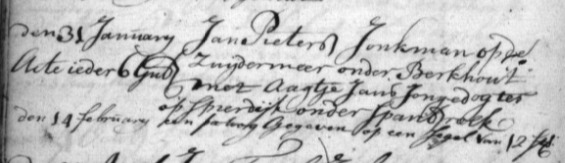 den 31 January Jan Pieters Jonkman op de
Acte ieder 6 Guld Zuydermeer onder Berkhout
met Aagtje Jans Jongedogter
op Sperdijk onder Spanbroek
den 14 february een gegeven op een Segel van 12